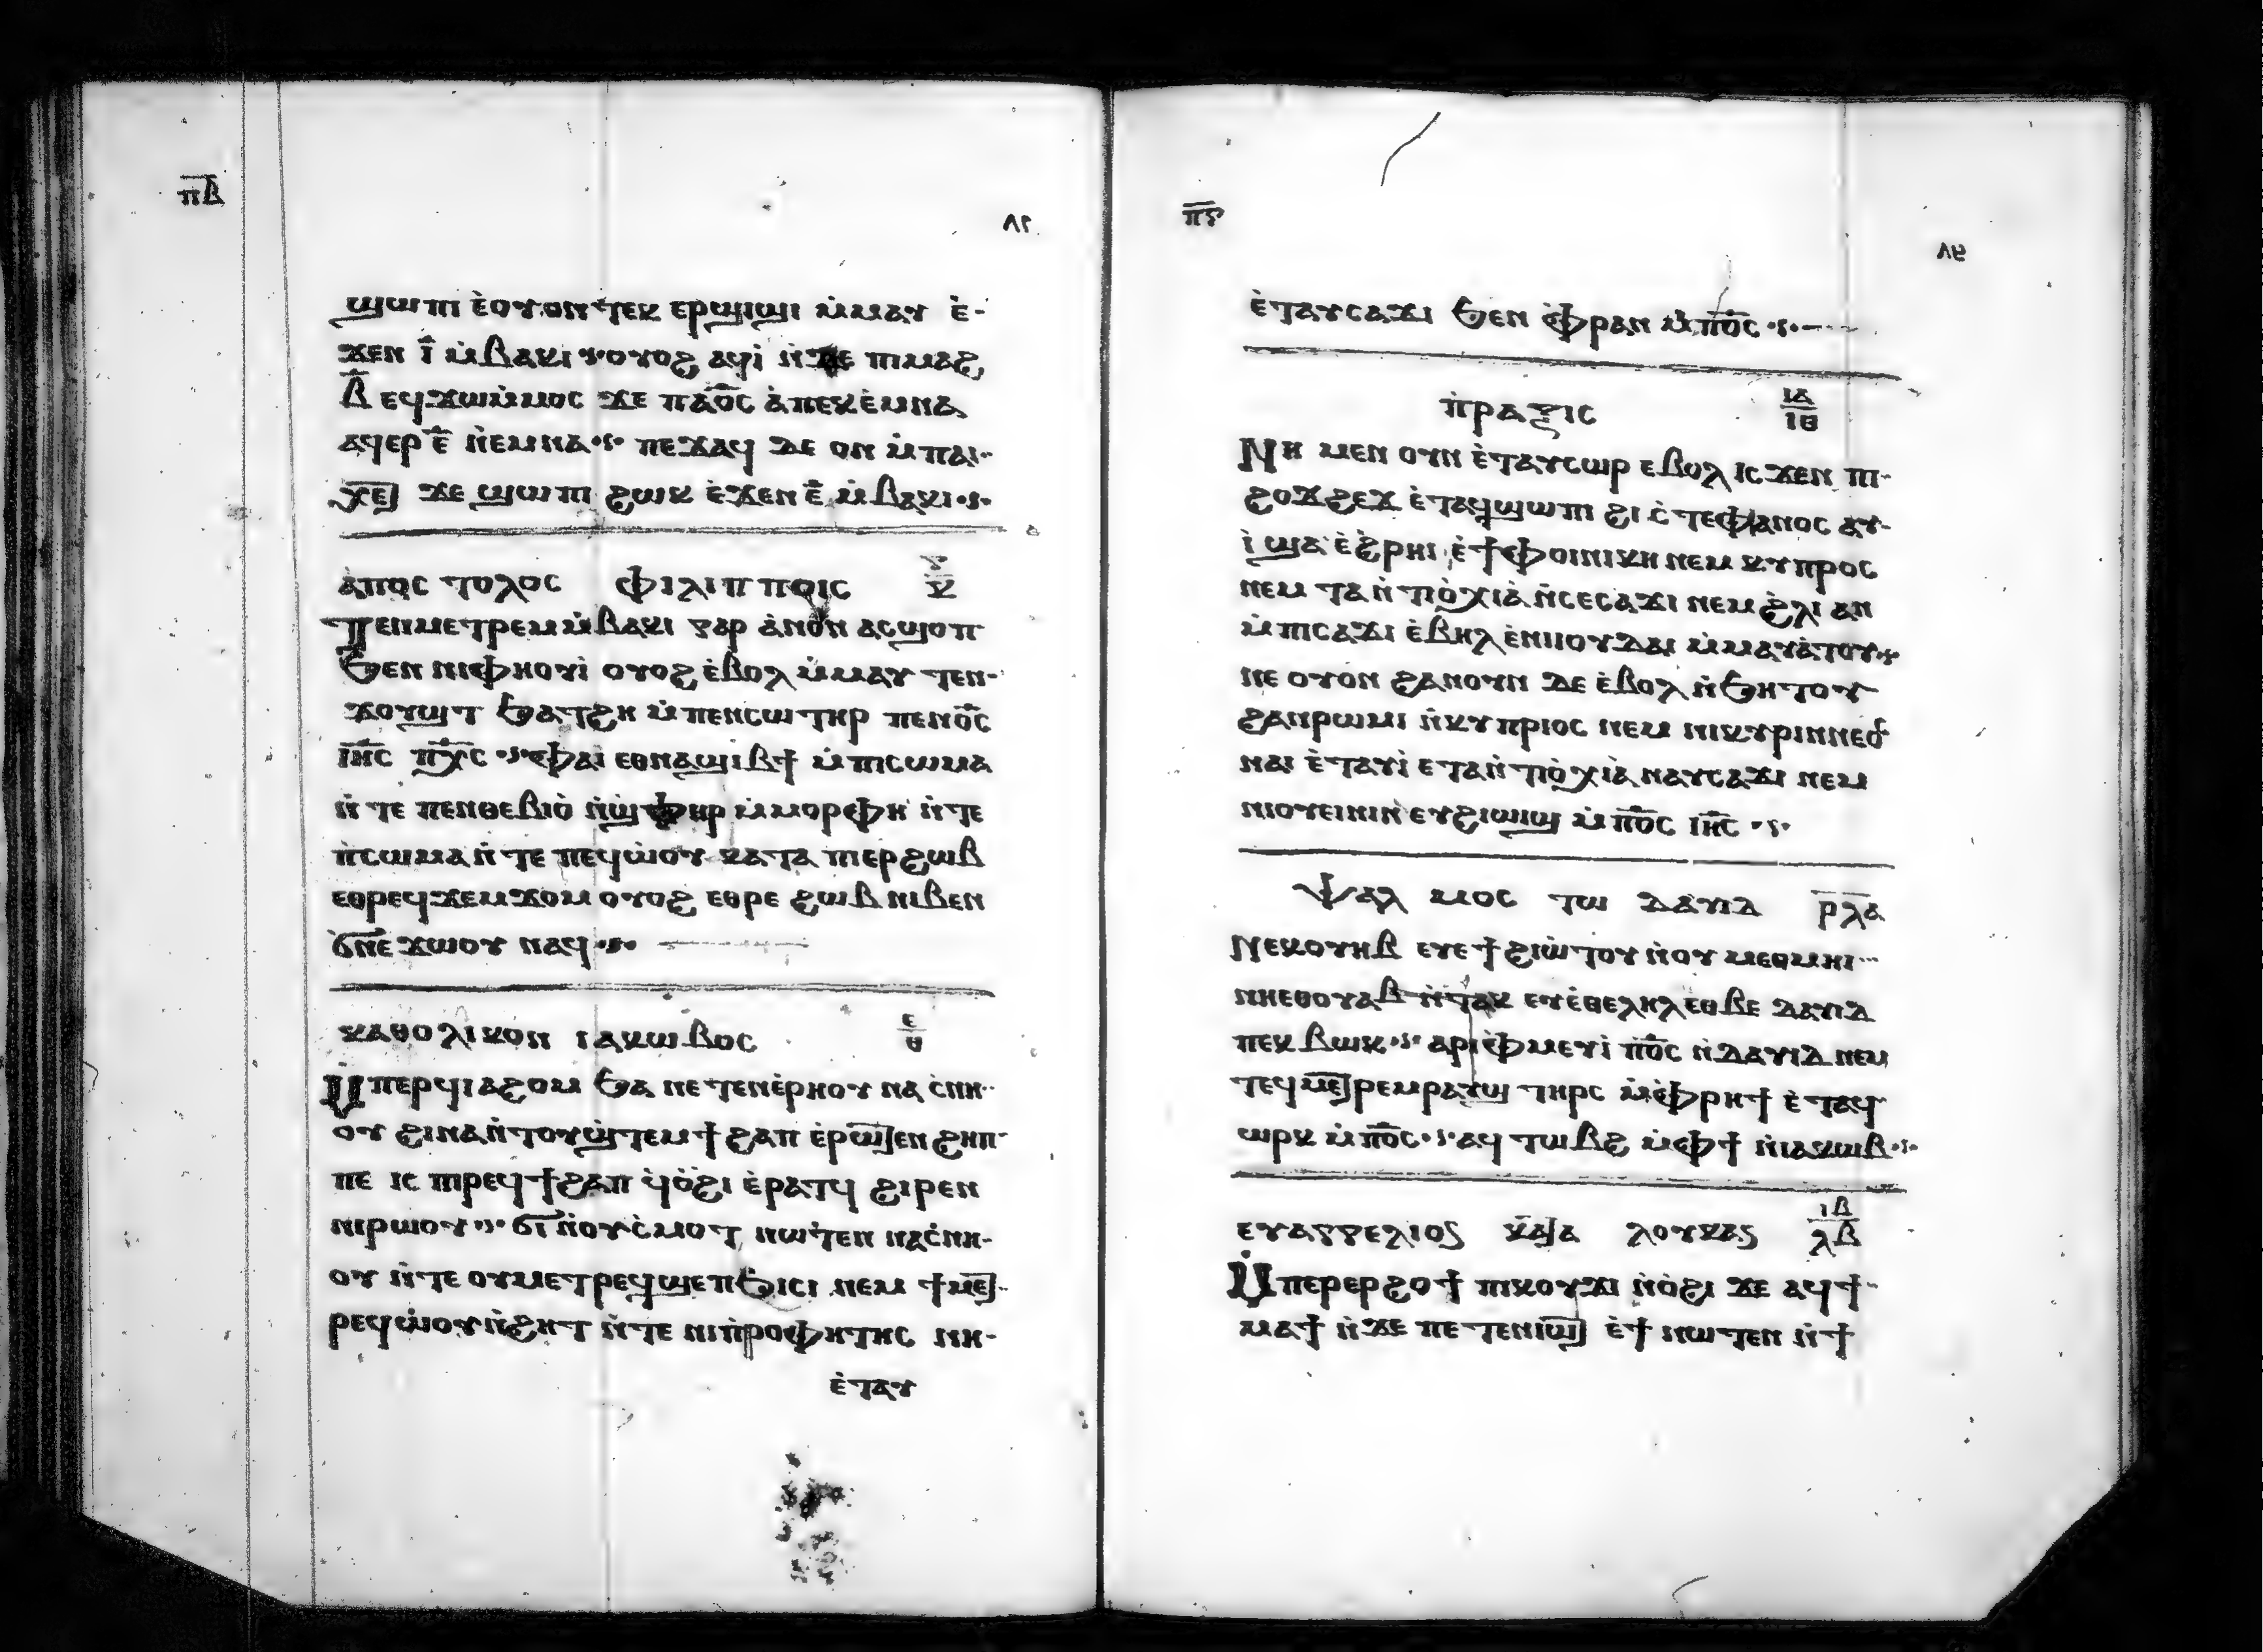 ⲡ̅ⲃ̅
٨٢
ϣⲱⲡⲓ ⲉ̀ⲟⲩⲟⲛⲧⲉⲕ ⲉⲣϣⲓϣⲓ ⲙ̀ⲙⲁⲩ ⲉ̀-
ϫⲉⲛ ⲓ̅ ⲙ̀ⲃⲁⲕⲓ ⲟⲩⲟϩ ⲁϥⲓ̀ ⲛ̀ϫⲉ ⲡⲓⲙⲁϩ
ⲃ̅ ⲉϥϫⲱⲙ̀ⲙⲟⲥ ϫⲉ ⲡⲁⲟ̅ⲥ ⲁ̀ⲡⲉⲕⲉ̀ⲙⲛⲁ
ⲁϥⲉⲣ ⲉ̅ ⲛ̀ⲉⲙⲛⲁ ⲡⲉϫⲁϥ ⲇⲉ ⲟⲛ ⲙ̀ⲡⲁⲓ-
ⲭⲉⲧ ϫⲉ ϣⲱⲡⲓ ϩⲱⲕ ⲉ̀ϫⲉⲛ ⲉ̅ ⲙ̀ⲃⲁⲕⲓ
ⲁ̀ⲡⲟⲥⲧⲟⲗⲟⲥ ⲫⲓⲗⲓⲡⲡⲟⲓⲥ ⲅ̅ ⲕ̅
ⲡⲉⲛⲙⲉⲧⲣⲉⲙⲙ̀ⲃⲁⲕⲓ ⲅⲁⲣ ⲁ̀ⲛⲟⲛ ⲁⲥϣⲟⲡ
ϧⲉⲛ ⲛⲓⲫⲏⲟⲩⲓ̀ ⲟⲩⲟϩ ⲉ̀ⲃⲟⲗ ⲙ̀ⲙⲁⲩ ⲧⲉⲛ-
ϫⲟⲩϣⲧ ϧⲁⲧϩⲏ ⲙ̀ⲡⲉⲛⲥⲱⲧⲏⲣ ⲡⲉⲛⲟ̅ⲥ
ⲓⲏ̅ⲥ ⲡⲭ̅ⲥ ⲫⲁⲓ ⲉⲑⲛⲁϣⲓⲃϯ ⲙ̀ⲡⲓⲥⲱⲙⲁ
ⲛ̀ⲧⲉ ⲡⲉⲛⲑⲉⲃⲓⲟ̀ ⲛ̀ϣ̀ⲫⲏⲣ ⲙ̀ⲙⲟⲣⲫⲏ ⲛ̀ⲧⲉ
ⲡ̀ⲥⲱⲙⲁ ⲛ̀ⲧⲉ ⲡⲉϥⲱ̀ⲟⲩ ⲕⲁⲧⲁ ⲡⲓⲉⲣϩⲱⲃ
ⲉⲑⲣⲉϥϫⲉⲙϫⲟⲙ ⲟⲩⲟϩ ⲉⲑⲣⲉ ϩⲱⲃ ⲛⲓⲃⲉⲛ
ϭⲛⲉϫⲱⲟⲩ ⲛⲁϥ
ⲕⲁⲑⲟⲗⲓⲕⲟⲛ ⲓⲁⲕⲱⲃⲟⲥ ⲉ̅ ⲑ
ⲙ̀ⲡⲉⲣϥⲓⲁϩⲟⲙ ϧⲁ ⲛⲉⲧⲉⲛⲉ̀ⲣⲏⲟⲩ ⲛⲁⲥ̀ⲛⲏ-
ⲟⲩ ϩⲓⲛⲁ ⲛ̀ⲧⲟⲩϣ̀ⲧⲉⲙϯϩⲁⲡ ⲉ̀ⲣⲱⲧⲉⲛ ϩⲏⲡ-
ⲡⲉ ⲓⲥ ⲡⲓⲣⲉϥϯϩⲁⲡ ϥ̀ⲟ̀ϩⲓ ⲉ̀ⲣⲁⲧϥ ϩⲓⲣⲉⲛ
ⲛⲓⲣⲱⲟⲩ ϭⲓ ⲛ̀ⲟⲩⲥ̀ⲙⲟⲧ ⲛⲱⲧⲉⲛ ⲛⲁⲥ̀ⲛⲏ-
ⲟⲩ ⲛ̀ⲧⲉ ⲟⲩⲙⲉⲧⲣⲉϥϣⲉⲡϧⲓⲥⲓ ⲛⲉⲙ ϯⲙⲉⲧ-
ⲣⲉϥⲱ̀ⲟⲩⲛ̀ϩⲏⲧ ⲛ̀ⲧⲉ ⲛⲓⲡ̀ⲣⲟⲫⲏⲧⲏⲥ ⲛⲏ-
ⲉ̀ⲧⲁⲩ
ⲡ̅ⲅ̅
ⲉ̀ⲧⲁⲩⲥⲁϫⲓ ϧⲉⲛ ⲫ̀ⲣⲁⲛ ⲙ̀ⲡⲟ̅ⲥ
ⲡ̀ⲣⲁⲝⲓⲥ ⲓⲁ̅ ⲓⲑ
ⲛⲏ ⲙⲉⲛ ⲟⲩⲛ ⲉ̀ⲧⲁⲩⲥⲱⲣ ⲉⲃⲟⲗ ⲓⲥϫⲉⲛ ⲡⲓ-
ϩⲟϫϩⲉϫ ⲉ̀ⲧⲁϥϣⲱⲡⲓ ϩⲓ ⲥ̀ⲧⲉⲫⲁⲛⲟⲥ ⲁⲩ-
ⲓ̀ ϣⲁ ⲉ̀ϩ̀ⲣⲏⲓ ⲉ̀ϯⲫⲟⲓⲛⲓⲕⲏ ⲛⲉⲙ ⲕⲩⲡⲣⲟⲥ
ⲛⲉⲙ ⲧⲁⲛ̀ⲧⲓⲟ̀ⲭⲓⲁ̀ ⲛ̀ⲥⲉⲥⲁϫⲓ ⲛⲉⲙ ϩ̀ⲗⲓ ⲁⲛ
ⲙ̀ⲡⲓⲥⲁϫⲓ ⲉ̀ⲃⲏⲗ ⲉ̀ⲛⲓⲟⲩⲇⲁⲓ ⲙ̀ⲙⲁⲩⲁ̀ⲧⲟⲩ
ⲛⲉ ⲟⲩⲟⲛ ϩⲁⲛⲟⲩⲛ ⲇⲉ ⲉ̀ⲃⲟⲗ ⲛ̀ϧⲏⲧⲟⲩ
ϩⲁⲛⲣⲱⲙⲓ ⲛ̀ⲕⲩⲡⲣⲓⲟⲥ ⲛⲉⲙ ⲛⲓⲕⲩⲣⲓⲛⲛⲉⲟⲥ
ⲛⲁⲓ ⲉ̀ⲧⲁⲩⲓ̀ ⲉⲧⲁⲛ̀ⲧⲓⲟ̀ⲭⲓⲁ̀ ⲛⲁⲩⲥⲁϫⲓ ⲛⲉⲙ
ⲛⲓⲟⲩⲉⲓⲛⲓⲛ ⲉⲩϩⲓϣⲓϣ ⲙ̀ⲡⲟ̅ⲥ ⲓⲏ̅ⲥ
ⲯⲁⲗⲙⲟⲥ ⲧⲱ ⲇⲁⲩⲓⲇ ⲣ̅ⲗ̅ⲁ
ⲛⲉⲕⲟⲩⲏⲃ ⲉⲩⲉϯϩⲓⲱ̀ⲧⲟⲩ ⲛ̀ⲟⲩⲙⲉⲑⲙⲏⲓ
ⲛⲏⲉⲑⲟⲩⲁⲃ ⲛ̀ⲧⲁⲕ ⲉⲩⲉ̀ⲑⲉⲗⲏⲗ ⲉⲑⲃⲉ ⲇⲁⲩⲓⲇ
ⲡⲉⲕⲃⲱⲕ ⲁⲣⲓⲫ̀ⲙⲉⲩⲓ̀ ⲡⲟ̅ⲥ ⲛ̀ⲇⲁⲩⲓⲇ ⲛⲉⲙ
ⲧⲉϥⲙⲉⲧⲣⲉⲙⲣⲁⲩϣ ⲧⲏⲣⲥ ⲙ̀ⲫ̀ⲣⲏϯ ⲉ̀ⲧⲁϥ
ⲱⲣⲕ ⲙ̀ⲡⲟ̅ⲥ ⲁϥⲧⲱⲃϩ ⲙ̀ⲫϯ ⲛ̀ⲓⲁⲕⲱⲃ
ⲉⲩⲁⲅⲅⲉⲗⲓⲟⲥ ⲕⲁⲧⲁ ⲗⲟⲩⲕⲁⲥ ⲓⲃ̅ ⲗⲃ
ⲙ̀ⲡⲉⲣⲉⲣϩⲟϯ ⲡⲓⲕⲟⲩϫⲓ ⲛ̀ⲟ̀ϩⲓ ϫⲉ ⲁϥϯ-
ⲙⲁϯ ⲛ̀ϫⲉ ⲡⲉⲧⲉⲛⲓⲱⲧ ⲉ̀ϯ ⲛⲱⲧⲉⲛ ⲛ̀ϯ